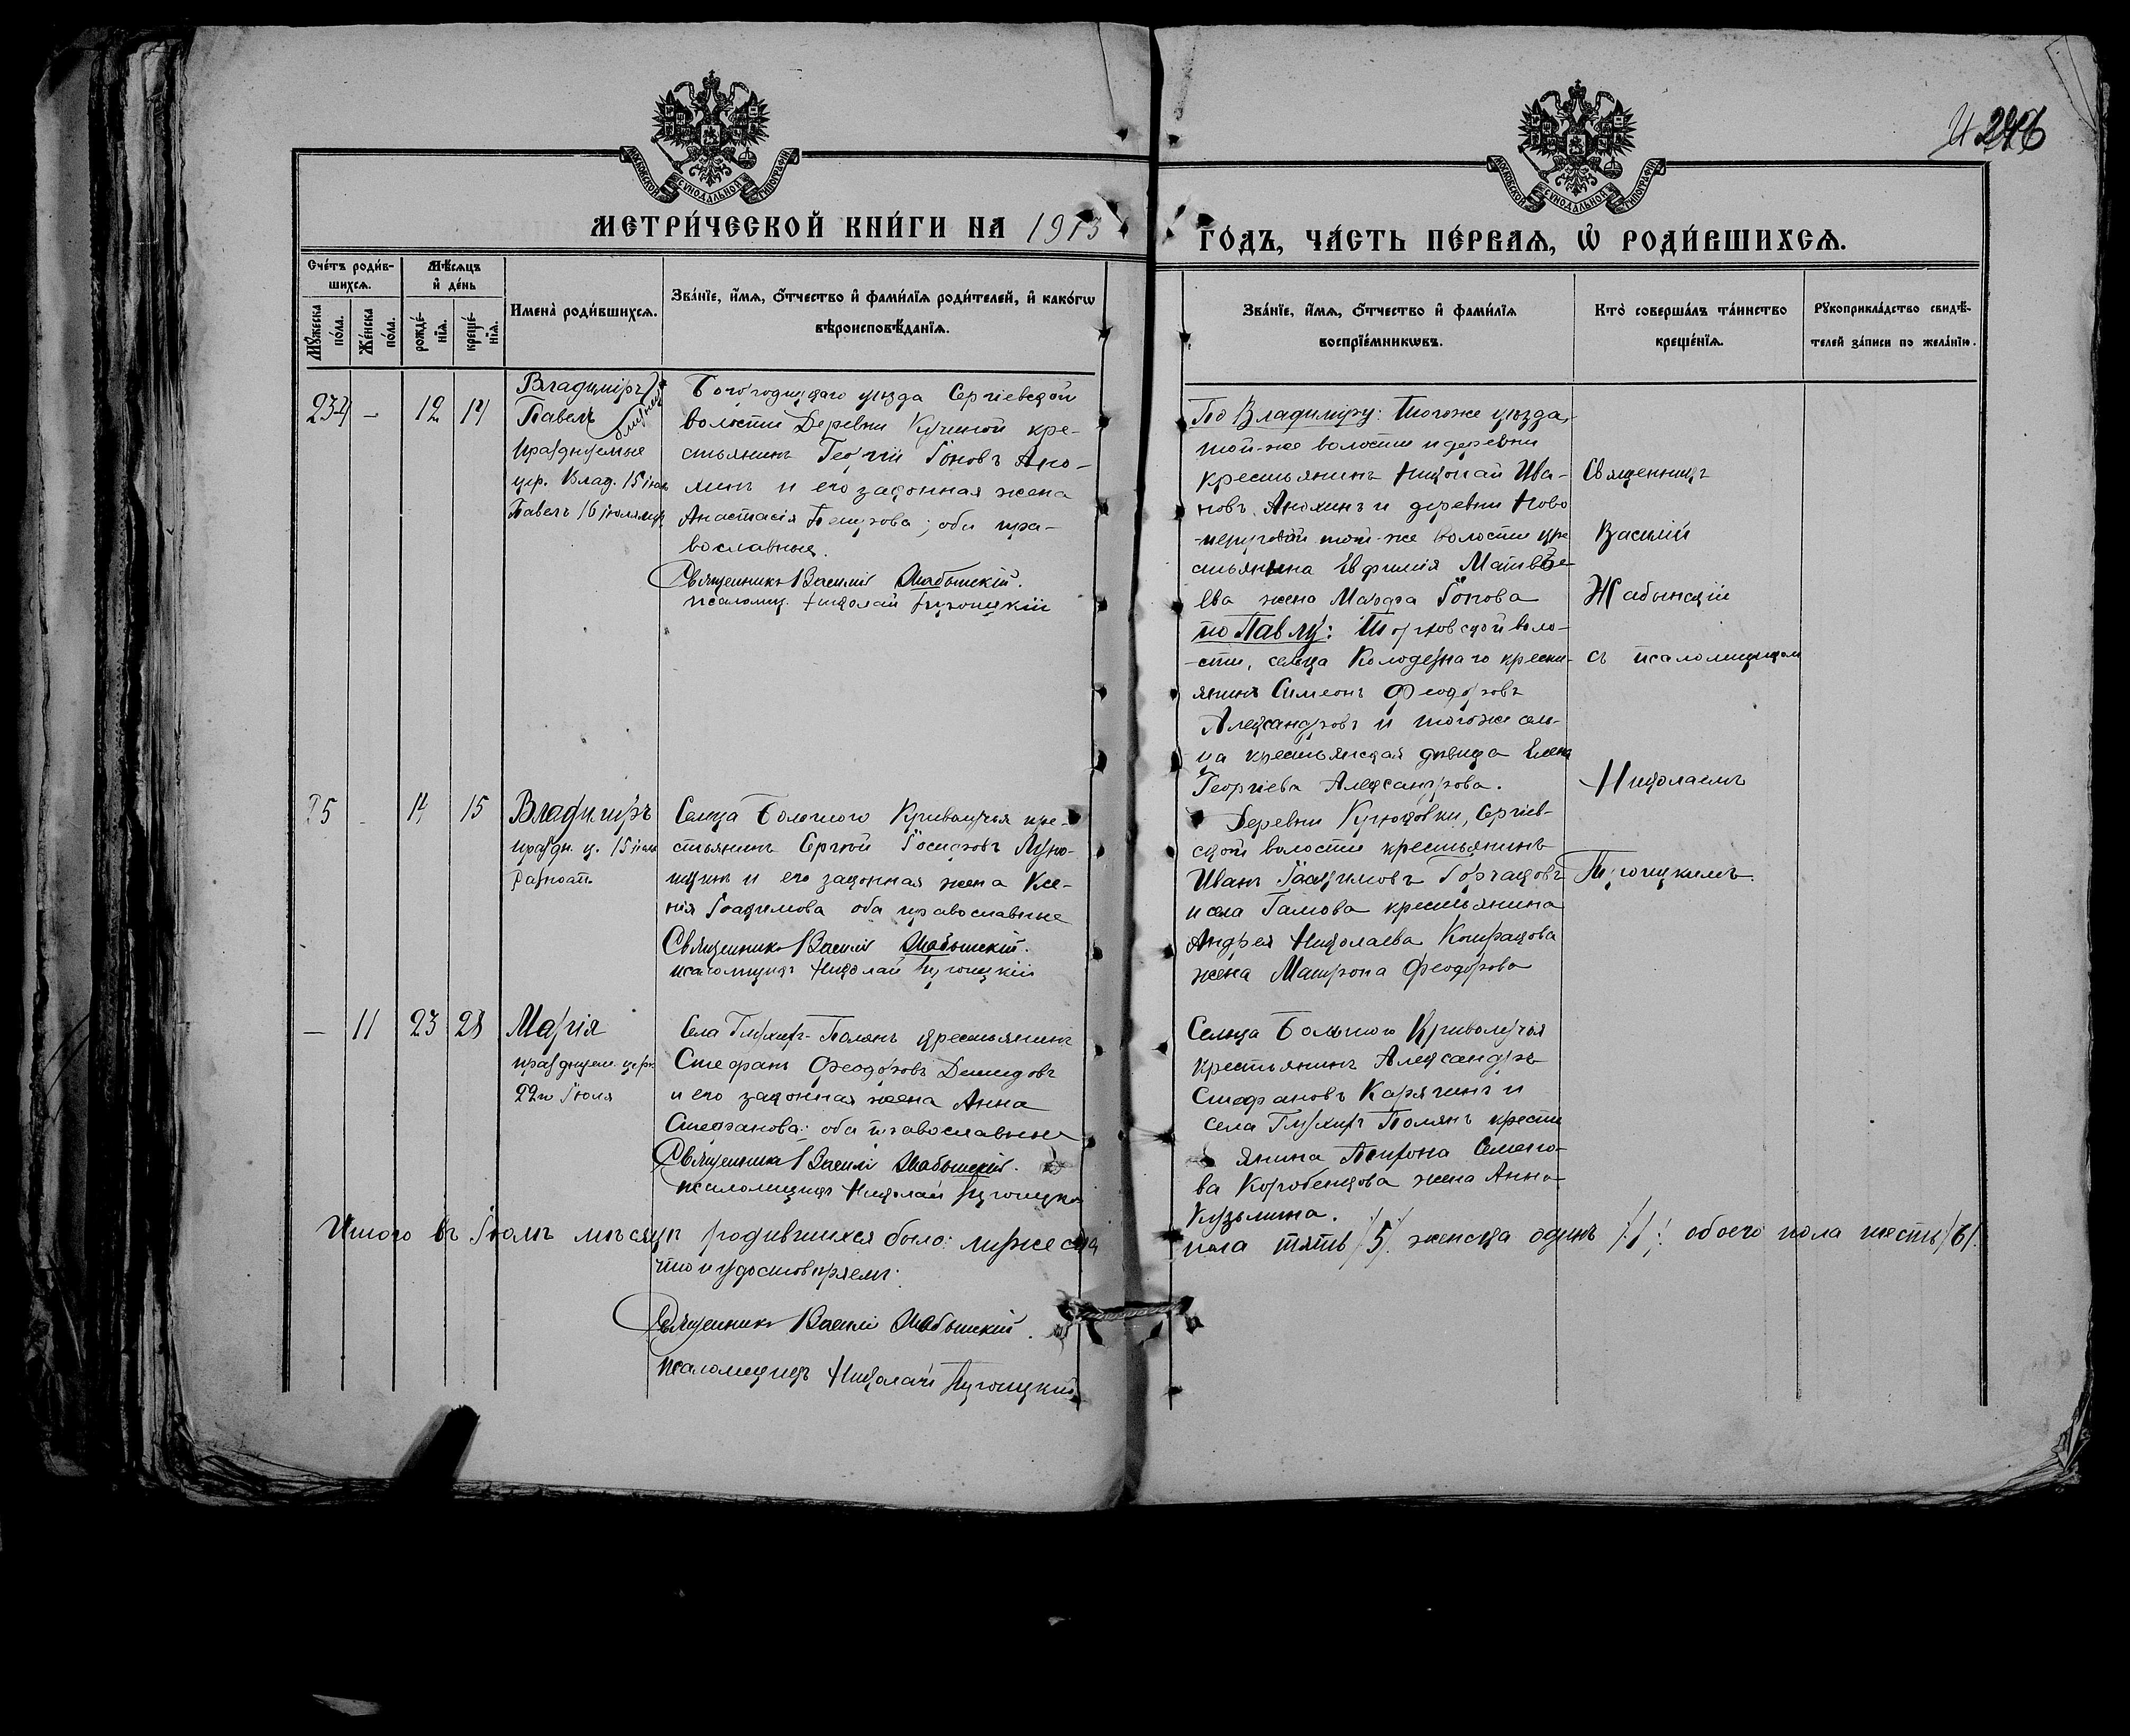 246
МОСКОВСКОЙ СУНОДАЛЬНОЙ ТИПОГРАФИИ
МОСКОВСКОЙ СУНОДАЛЬНОЙ ТИПОГРАФИИ
МЕТРИ́ЧЕСКОЙ КНИ́ГИ НА 1913
ГО́ДЪ, ЧА́СТЬ ПЕ́РВАѦ, Ѡ РОДИ́ВШИХСѦ.
Сче́тъ роди́в-
шихсѧ.
Мꙋ́жеска по́ла.
Же́нска по́ла.
Мѣ́сѧцъ
и де́нь
рожде́-
нїѧ.
креще́-
нїѧ.
Имена̀ роди́вшихсѧ.
Зва́нїе, и́мѧ, ѻ҆́тчество и҆ фами́лїѧ роди́телей, и҆ како́гѡ
вѣроисповѣ́данїѧ.
Зва́нїе, и́мѧ, ѻ҆́тчество и҆ фами́лїѧ
воспрїе́мникѡвъ.
Кто̀ соверша́лъ та́инство
креще́нїѧ.
Рꙋкоприкла́дство свидѣ́-
телей за́писи по жела́нїю.
234 – 12 14
Владиміръ
Павелъ близнецы
празднуемые
цер. Влад. 15 іюля
Павелъ 16 іюля
Богородицкаго уѣзда Сергіевской
волости Деревни Кучиной кре-
стьянинъ Георгій Іоновъ Ано-
хинъ и его законная жена
Анастасія Петрова; оба пра-
вославные.
Священникъ Василій Жабынскій.
псаломщ. Николай Тугоицкій
По Владиміру: Тогоже уѣзда,
той-же волости и деревни
крестьянинъ Николай Ива-
новъ Анохинъ и деревни Ново
той-же волости кре
стьянина Евфимія Матвѣе-
ева жена Марѳа Іонова
по Павлу: воло-
-сти, сельца Колодезнаго кресть-
янинъ Симеонъ Феодоровъ
Александровъ и тогоже сель-
ца крестьянская дѣвица Елена
Георгіева Александрова.
Священникъ
Василій
Жабынскій
съ псаломщикомъ
Николаемъ
25 – 14 15
Владиміръ
праздн. ц. 15 іюля
Равноап.
Сельца Большого Криволучья кре-
стьянинъ Сергій Іосифовъ
и его законная жена Ксе-
нія Іоакимова оба православные
Священникъ Василій Жабынскій.
псаломщикъ Николай Тугоицкій
Деревни Сергіев-
ской волости крестьянинъ
Иванъ Іоакимовъ Горчаковъ
и села Гамова крестьянина
Андрея Николаева Кондракова
жена Матрона Феодорова
– 11 23 28
Марія
празднуем. церк.
22го Іюля
Села Глухихъ-Полянъ крестьянинъ
Стефанъ Феодоровъ Демидовъ
и его законная жена Анна
Стефанова: оба православные
Священникъ Василій Жабынскій.
псаломщикъ Николай Тугоицкій
Сельца Большого Криволучья
крестьянинъ Александръ
Стефановъ Карячинъ и
села Глухихъ Полянъ кресть
янина Семено-
ва Коробенкова жена Анна
Кузьмина.
Итого въ Іюлѣ мѣсяцѣ родившихся было: мужеска
пола пять /5/. женска одинъ /1/; обоего пола шесть /6/.
что и удостовѣряемъ:
Священникъ Василій Жабынскій.
псаломщикъ Николай Тугоицкій